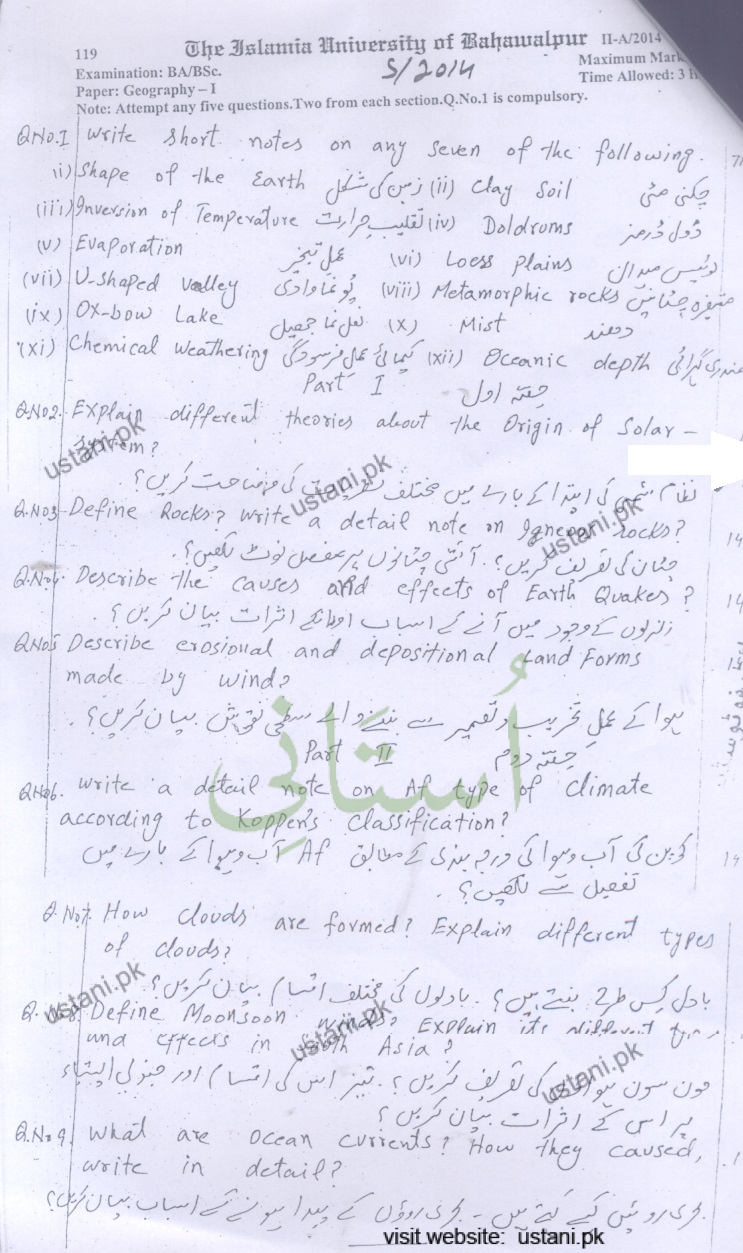 119 The Islamia University of Bahawalpur II-A/2014
Examination: BA/BSc. S/2014 Maximum Mark
Paper: Geography – I Time Allowed: 3 H
Note: Attempt any five questions.Two from each section.Q.No.1 is compulsory.
QNo.I Write short notes on any seven of the following.
i) Shape of the Earth زمین کی شکل (ii) Clay Soil چکنی مٹی
(iii) Inversion of Temperature تقلیب حرارت (iv) Doldrums ڈول ڈرمز
(v) Evaporation عمل تبخیر (vi) Loess Plains لوئیس میدان
(vii) U-shaped Valley یو نما وادی (viii) Metamorphic rocks متغیرہ چٹانیں
(ix) Ox-bow Lake نعل نما جھیل (x) Mist دھند
(xi) Chemical Weathering کیمیائی عمل فرسودگی (xii) Oceanic depth گہرائی
Part I حصّہ اول
Q.No2. Explain different theories about the Origin of Solar –
System?
نظام شمسی کی ابتدا کے بارے میں مختلف کی وضاحت کریں؟
Q.No3 Define Rocks? Write a detail note on Igneous rocks? 14
چٹان کی تعریف کریں؟. آتشی چٹانوں پر مفصل نوٹ لکھیں؟.
Q.No4. Describe the causes and effects of Earth Quakes? 14
زلزلوں کے وجود میں آنے کے اسباب اور انکے اثرات بیان کریں؟.
Q.No5 Describe erosional and depositional Land Forms
made by wind?
ہوا کے عمل تخریب و تعمیر سے بننے والے سطحی نقوش بیان کریں؟.
Part II حصّہ دوم
Q.No6. Write a detail note on Af type of Climate
according to Koppen's Classification?
کوپن کی آب و ہوا کی درجہ بندی کے مطابق Af آب و ہوا کے بارے میں
تفصیل سے لکھیں؟.
Q.No7. How clouds are formed? Explain different types
of clouds?
بادل کس طرح بنتے ہیں؟. بادلوں کی مختلف اقسام بیان کریں؟.
Q. Define Moonsoon winds? Explain its different
and effects in South Asia?
مون سون ہواؤں کی تعریف کریں؟. نیز اس کی اقسام اور جنوبی ایشیاء
پر اس کے اثرات بیان کریں؟
Q.No9. What are ocean currents? How they caused,
write in detail?
بحری روئیں کسے کہتے ہیں۔ بحری روؤں کے پیدا ہونے کے اسباب بیان کریں؟
اُستانی
ustani.pk
ustani.pk
ustani.pk
ustani.pk
ustani.pk
ustani.pk
visit website: ustani.pk